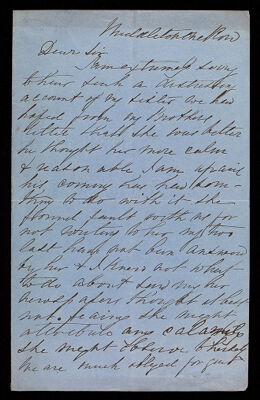 Middleton the Row
Dear Sir
I am extremely sorry
to hear such a distressing
account of my sister we had
hoped from my Brothers
letter that she was better
he thought her more calm
& reasonable I am afraid
his coming has had som-
thing to do with it she
found fault with us for
not writing to her my two
last have not been answered
by her & I know not what
to do about her
newspapers thought it best
not fearing she might
attribute any calamity
she might observe to herself
We are much obliged for your